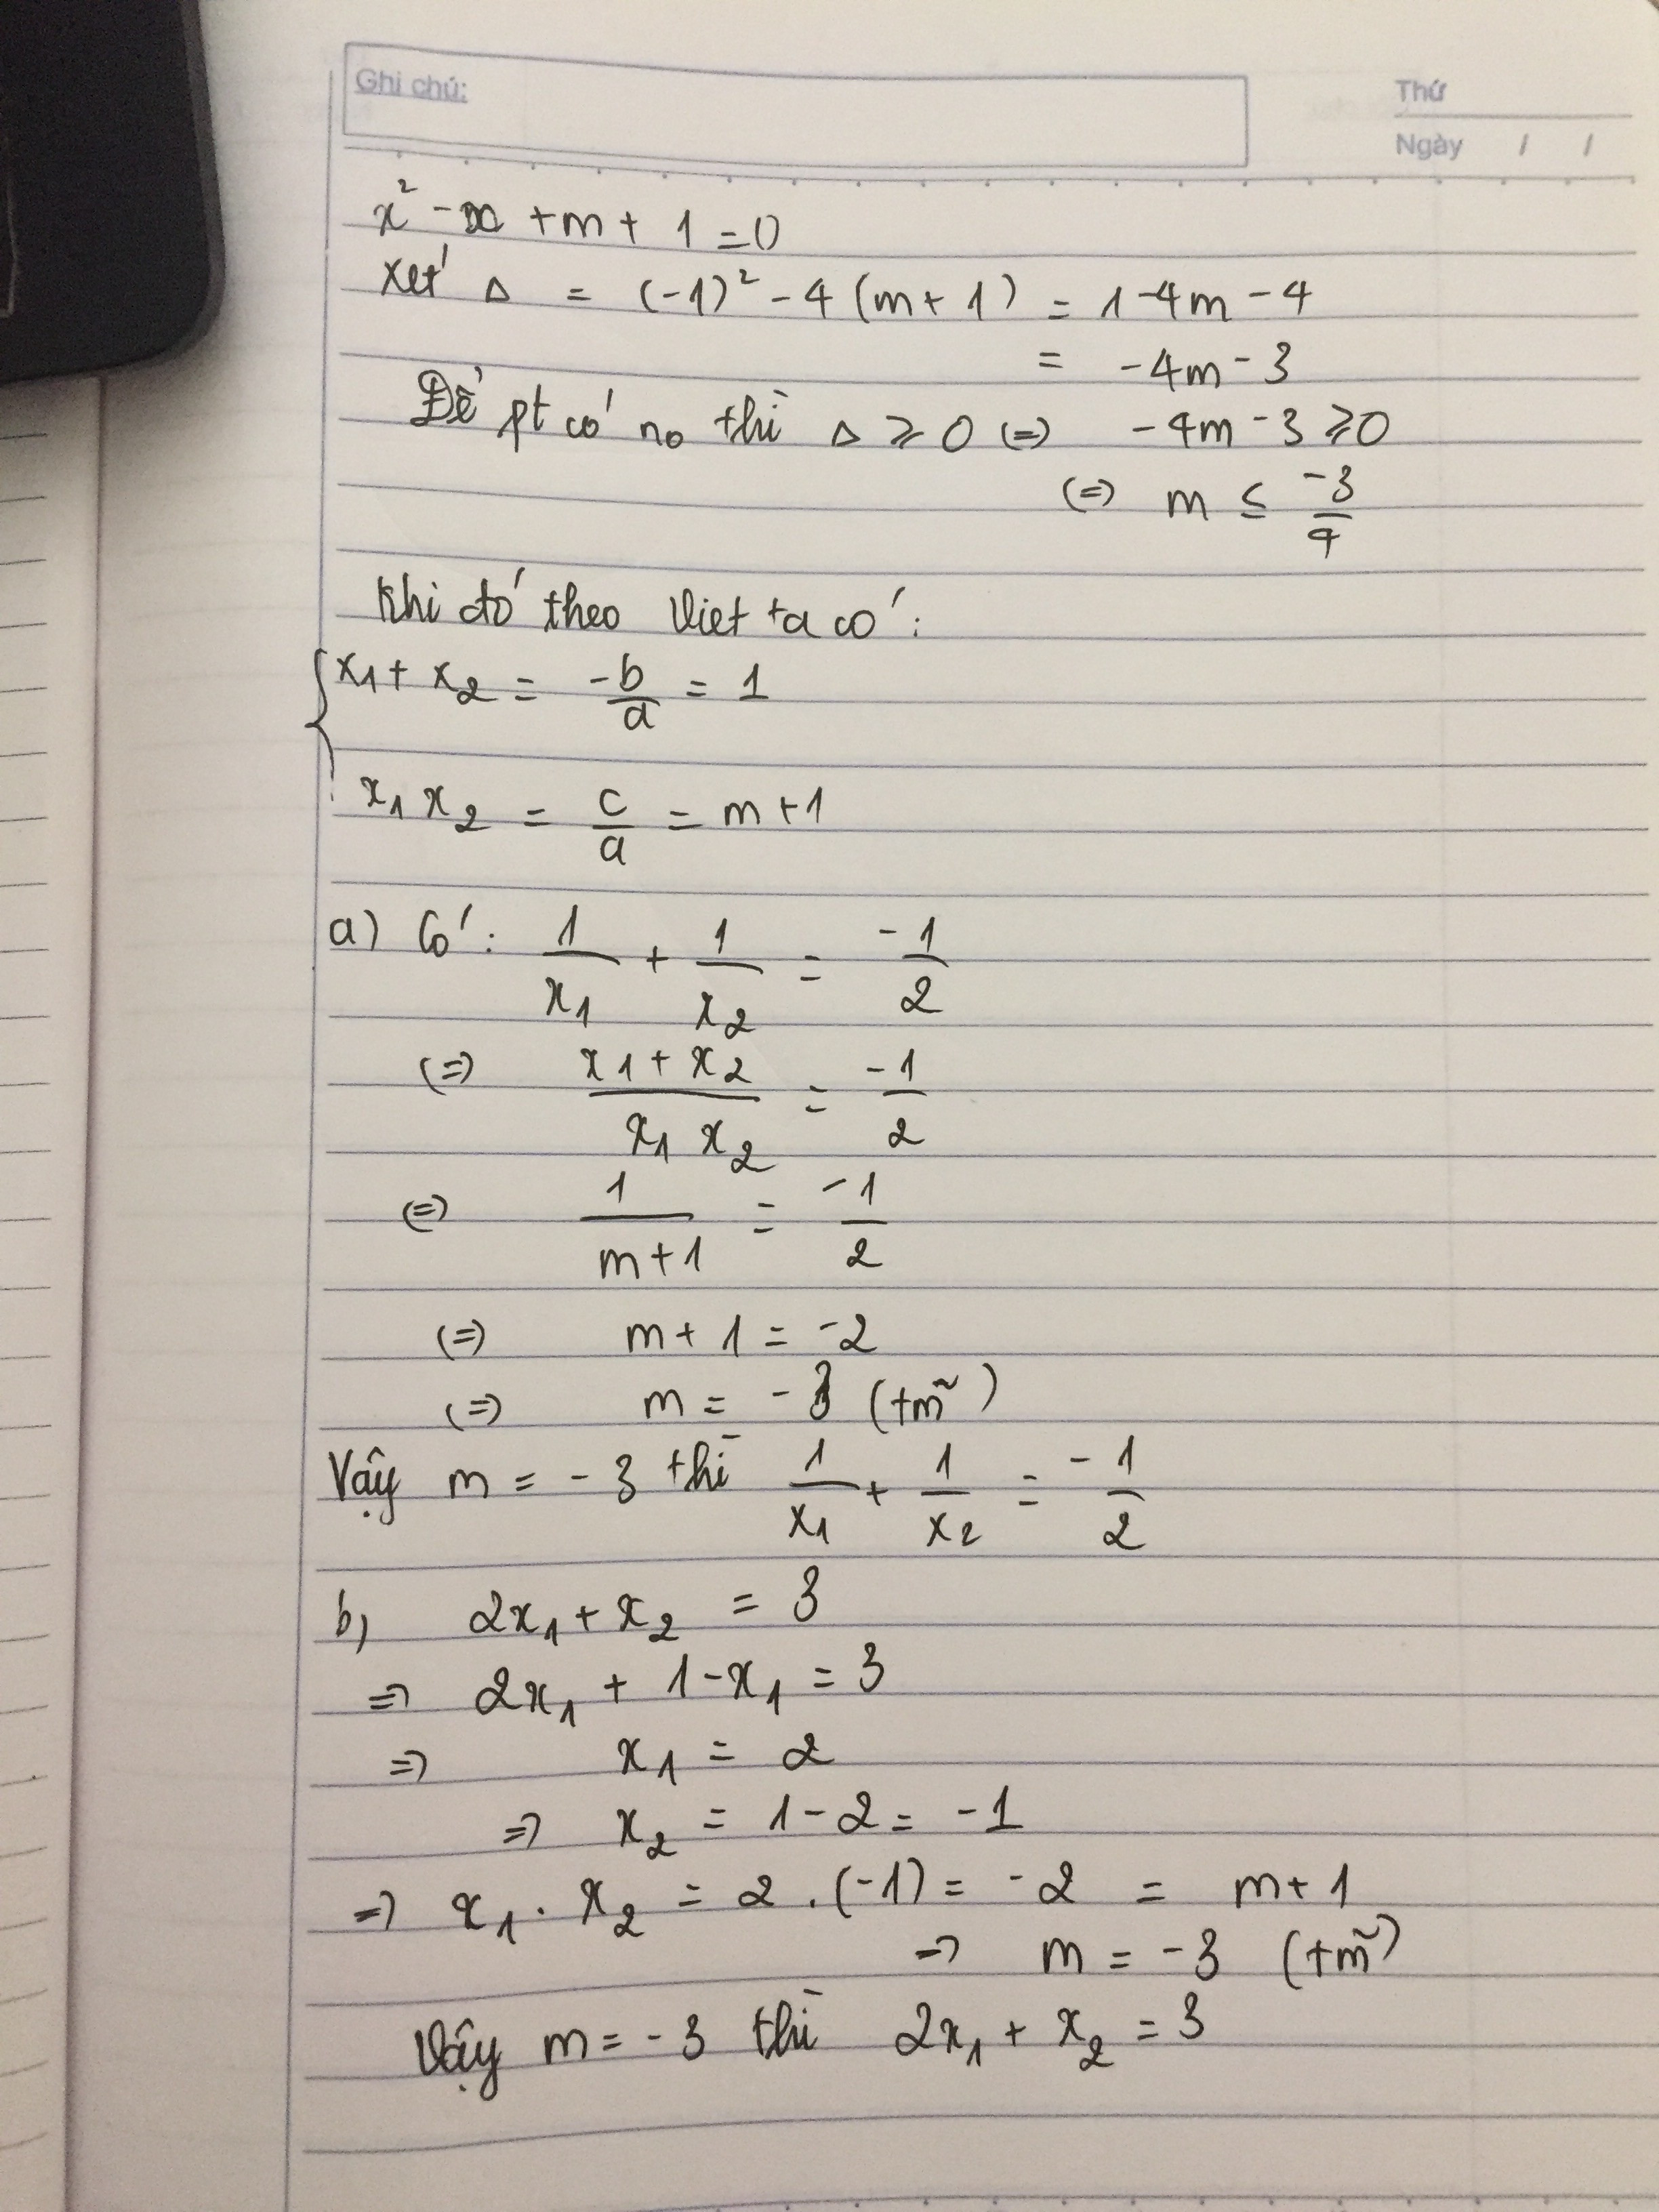 Ghi chú:
Thứ
Ngày / /
x² - x + m + 1 = 0
Xét Δ = (-1)² - 4(m+1) = 1-4m-4
= -4m-3
Để pt có no thì Δ ⩾ 0 (=) -4m-3 ⩾ 0
(=) m ≤ -3/4
Khi đó theo Viet ta có:
{ x₁ + x₂ = -b/a = 1
x₁ x₂ = c/a = m+1
a) Có: 1/x₁ + 1/x₂ = -1/2
(=) (x₁ + x₂)/(x₁ x₂) = -1/2
(=) 1/(m+1) = -1/2
(=) m+1 = -2
(=) m = -3 (tm̃)
Vậy m = -3 thì 1/x₁ + 1/x₂ = -1/2
b) 2x₁ + x₂ = 3
=> 2x₁ + 1-x₁ = 3
=> x₁ = 2
=> x₂ = 1-2 = -1
=> x₁ . x₂ = 2 . (-1) = -2 = m+1
=> m = -3 (tm̃)
Vậy m = -3 thì 2x₁ + x₂ = 3